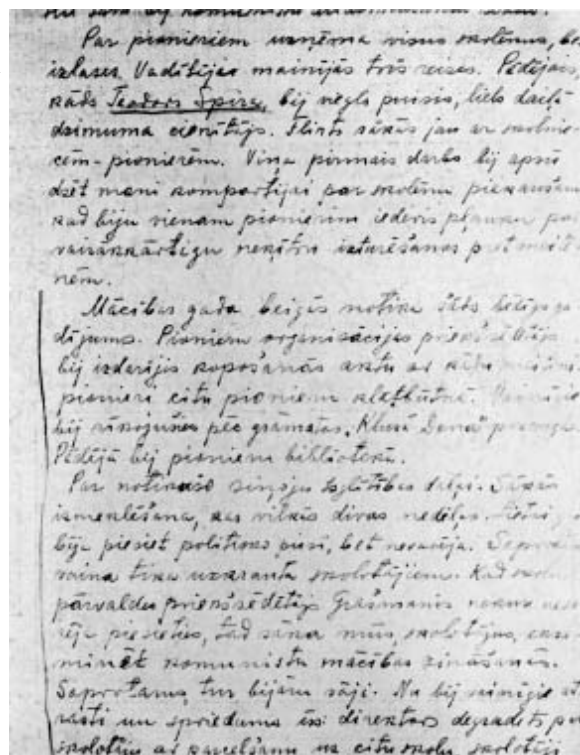 Par pionieriem uzņēma visus skolēnus, bez
izlases. Vadītājas mainījās trīs reizes. Pēdējais,
kāds Teodors Spize, bij vēgls puisis, liels daiļā
dzimuma cienītājs. Flirts sākās jau ar skolnie-
cēm-pionierēm. Viņa pirmais darbs bij apsū
dzēt mani kompartijai par skolēnu piekaušanu
kad biju vienam pionierim iedevis pļauku par
vairākkārtīgu neķītru izturēšanos pret meite-
nēm.
Mācības gada beigās notika šāds bēdīgs ga
dījums. Pionieru organizācijas priekšsēdētājs
bij izdarījis kopošanās aktu ar kādu
pionieri citu pionieru klātbūtnē. Vainīgie
bij rīkojušies pēc grāmatas "Klusā Dona" parauga.
Pēdējā bij pionieru bibliotekā.
Par notikušo ziņoju Izglītības daļai. Sākās
izmeklēšana, kas vilkās divas nedēļas. Lietai
bija piesiet politiskos, bet nevarēja. Saprotams
vaina tika uzkrauta skolotājiem. Kad skolu
pārvaldes priekšsēdētājs Grašmanis nekur neva
rēja piesieties, tad sāka mūs, skolotājus, eksa
minēt komunistu mācības zināšanās.
Saprotams, tur bijām vāji. Nu bij vainīgie at
rasti un spriedums īss: direktors degradēts par
skolotāju ar pārcelšanu uz citu skolu, skolotāji